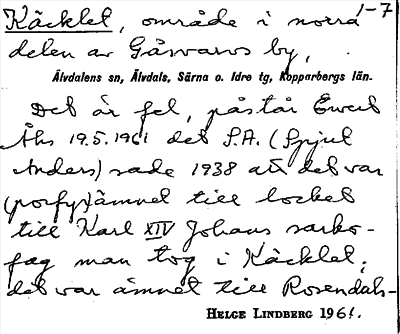 1-7
Käcklet, område i norra
delen av Gåsvarvs by,
Älvdalens sn, Älvdals, Särna o. Idre tg, Kopparbergs län.
Det är fel, påstår Evert
Åhs 19.5.1961 det S.A. (Spjul
Anders) sade 1938 att det var
(porfyr)ämnet till locket
till Karl XIV Johans sarko-
fag man tog i Käcklet;
det var ämnet till Rosendals-
HELGE LINDBERG 1961.